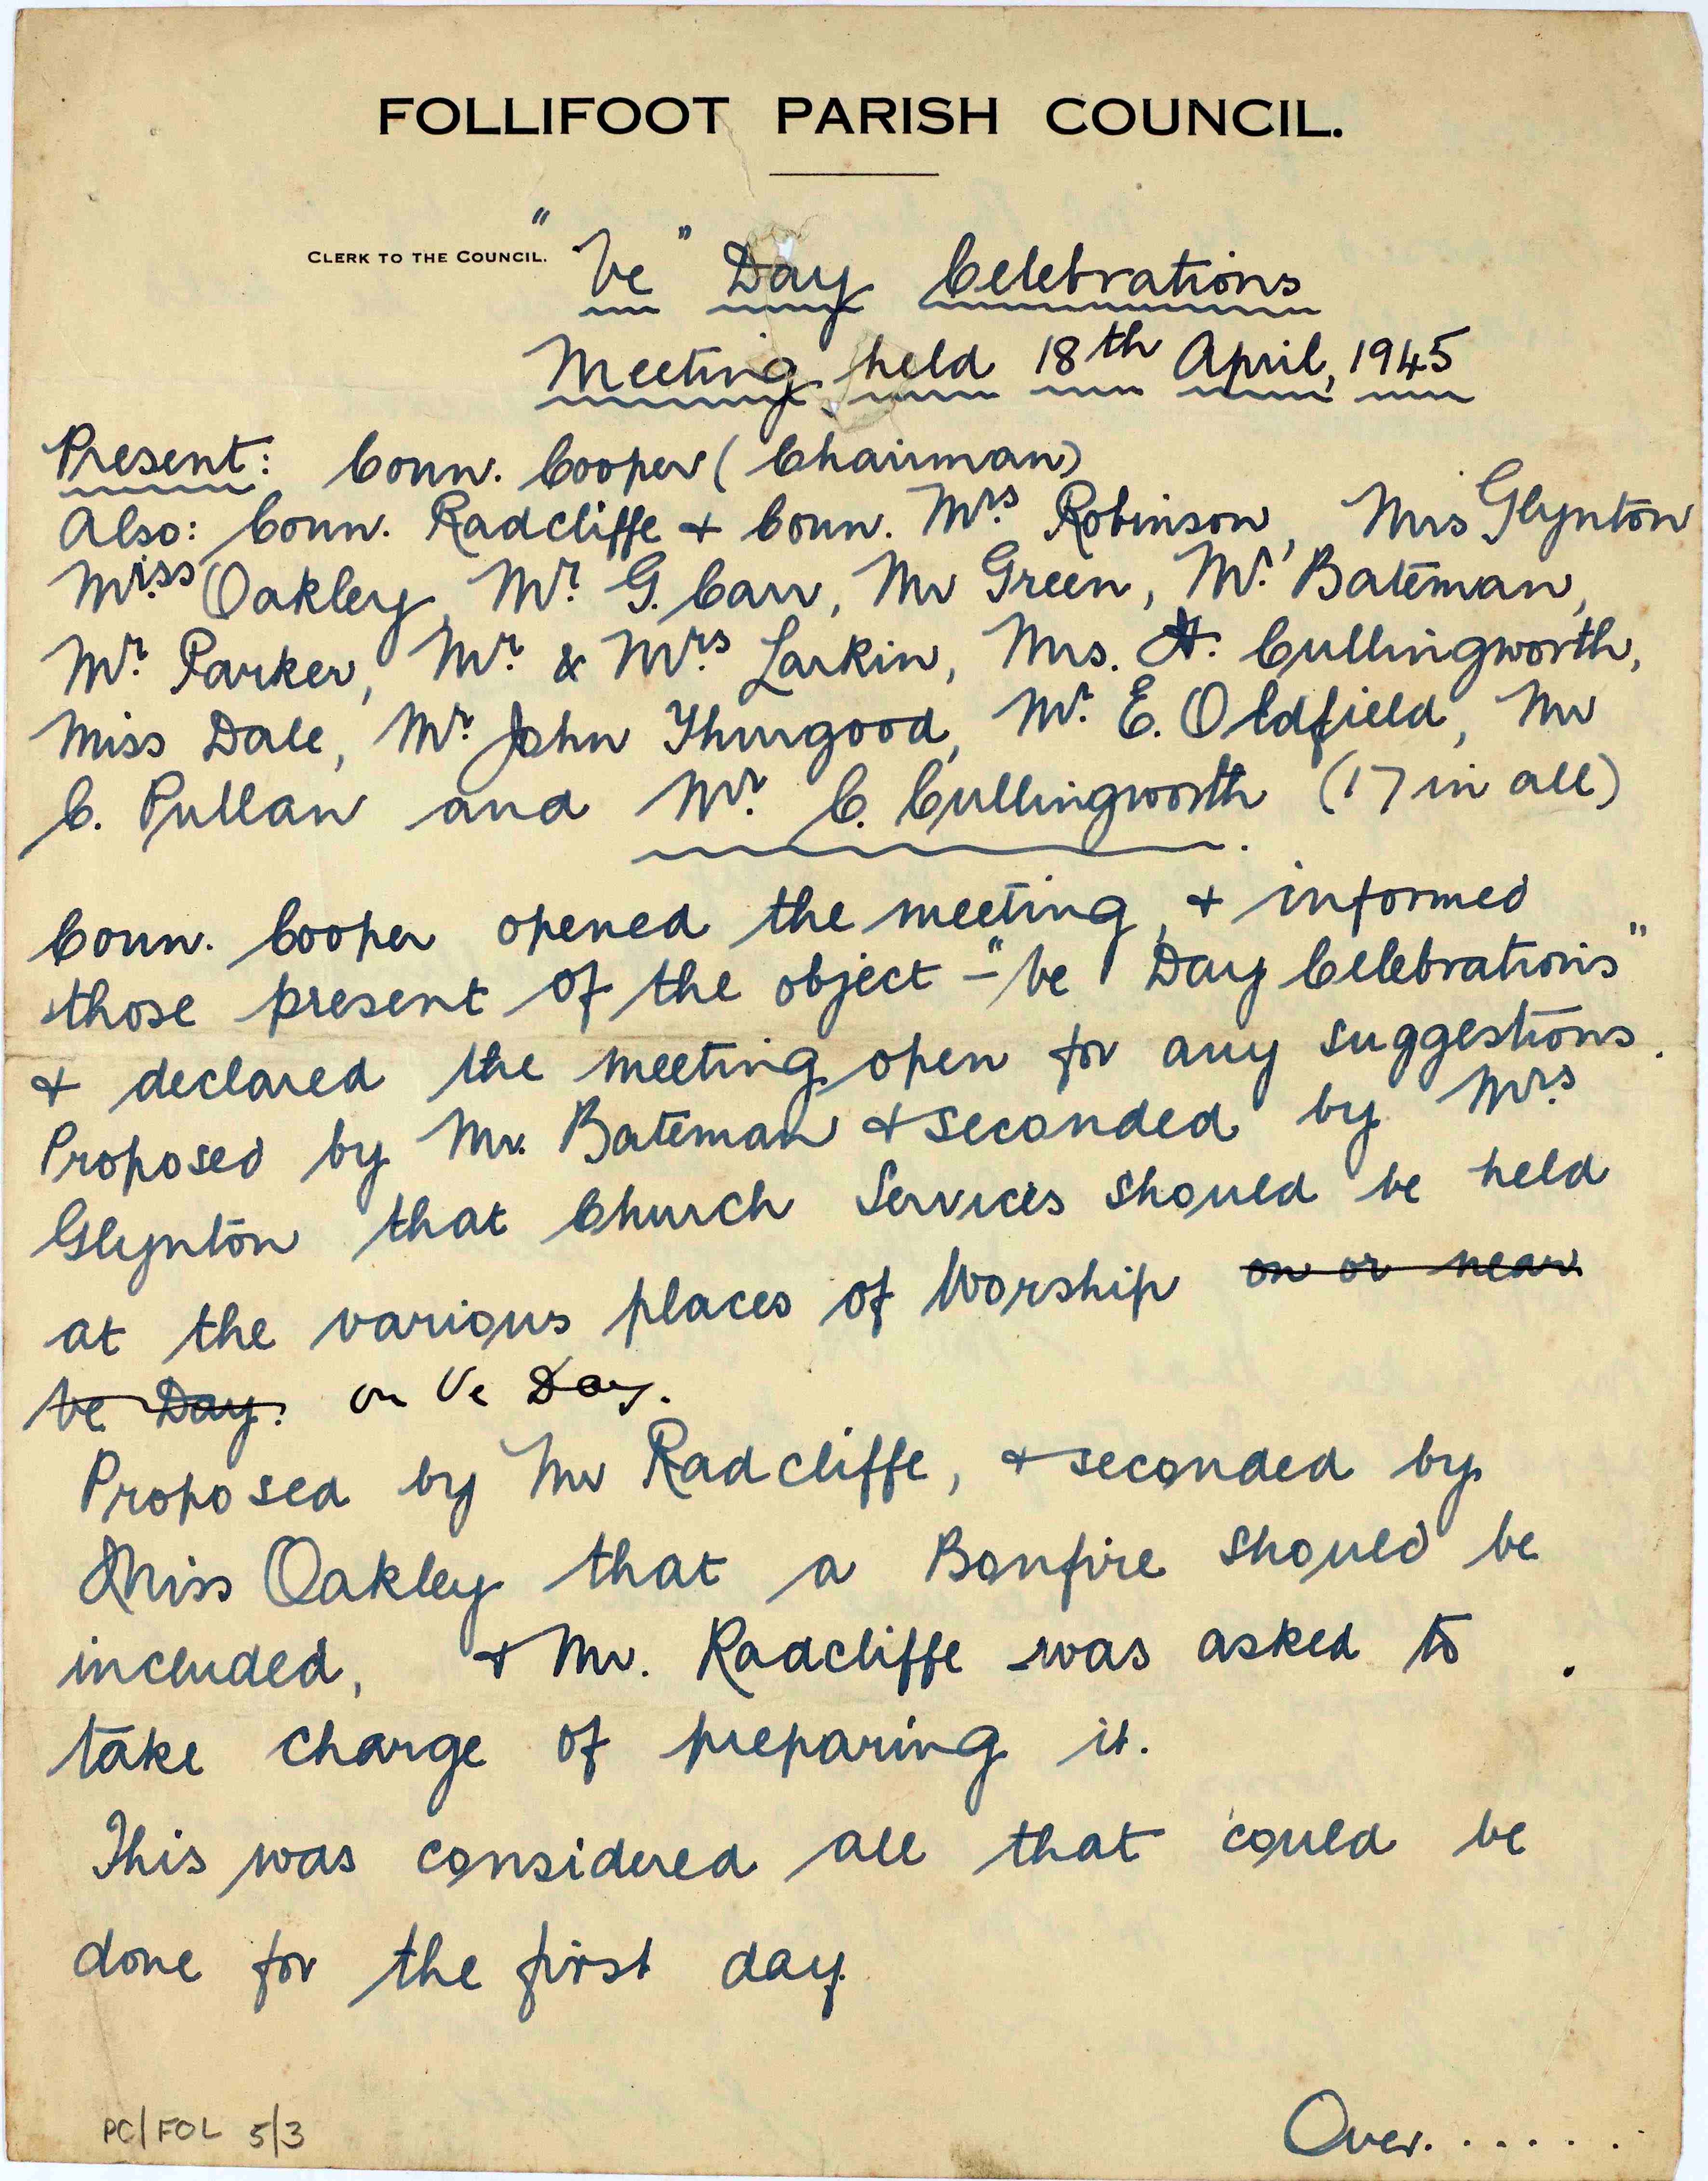 FOLLIFOOT PARISH COUNCIL.
CLERK TO THE COUNCIL. "Ve" Day Celebrations
Meeting held 18th April, 1945
Present: Coun. Cooper (Chairman)
Also: Coun. Radcliffe + Coun. Mrs Robinson, Mrs Glynton
Miss Oakley, Mr. G. Carr, Mr Green, Mr. Bateman,
Mr. Parker, Mr. & Mrs. Larkin, Mrs. A. Cullingworth,
Miss Dale, Mr John Thurgood, Mr. E. Oldfield, Mr
C. Pullan and Mr. C. Cullingworth (17 in all)
Coun. Cooper opened the meeting, + informed
those present of the object - "Ve Day Celebrations"
+ declared the meeting open for any suggestions.
Proposed by Mr. Bateman + seconded by Mrs.
Glynton that Church Services should be held
at the various places of Worship on or near
Ve Day. on Ve Day.
Proposed by Mr Radcliffe, + seconded by
Miss Oakley that a Bonfire should be
included, + Mr. Radcliffe was asked to
take charge of preparing it.
This was considered all that could be
done for the first day
Over......
PC/FOL 5/3